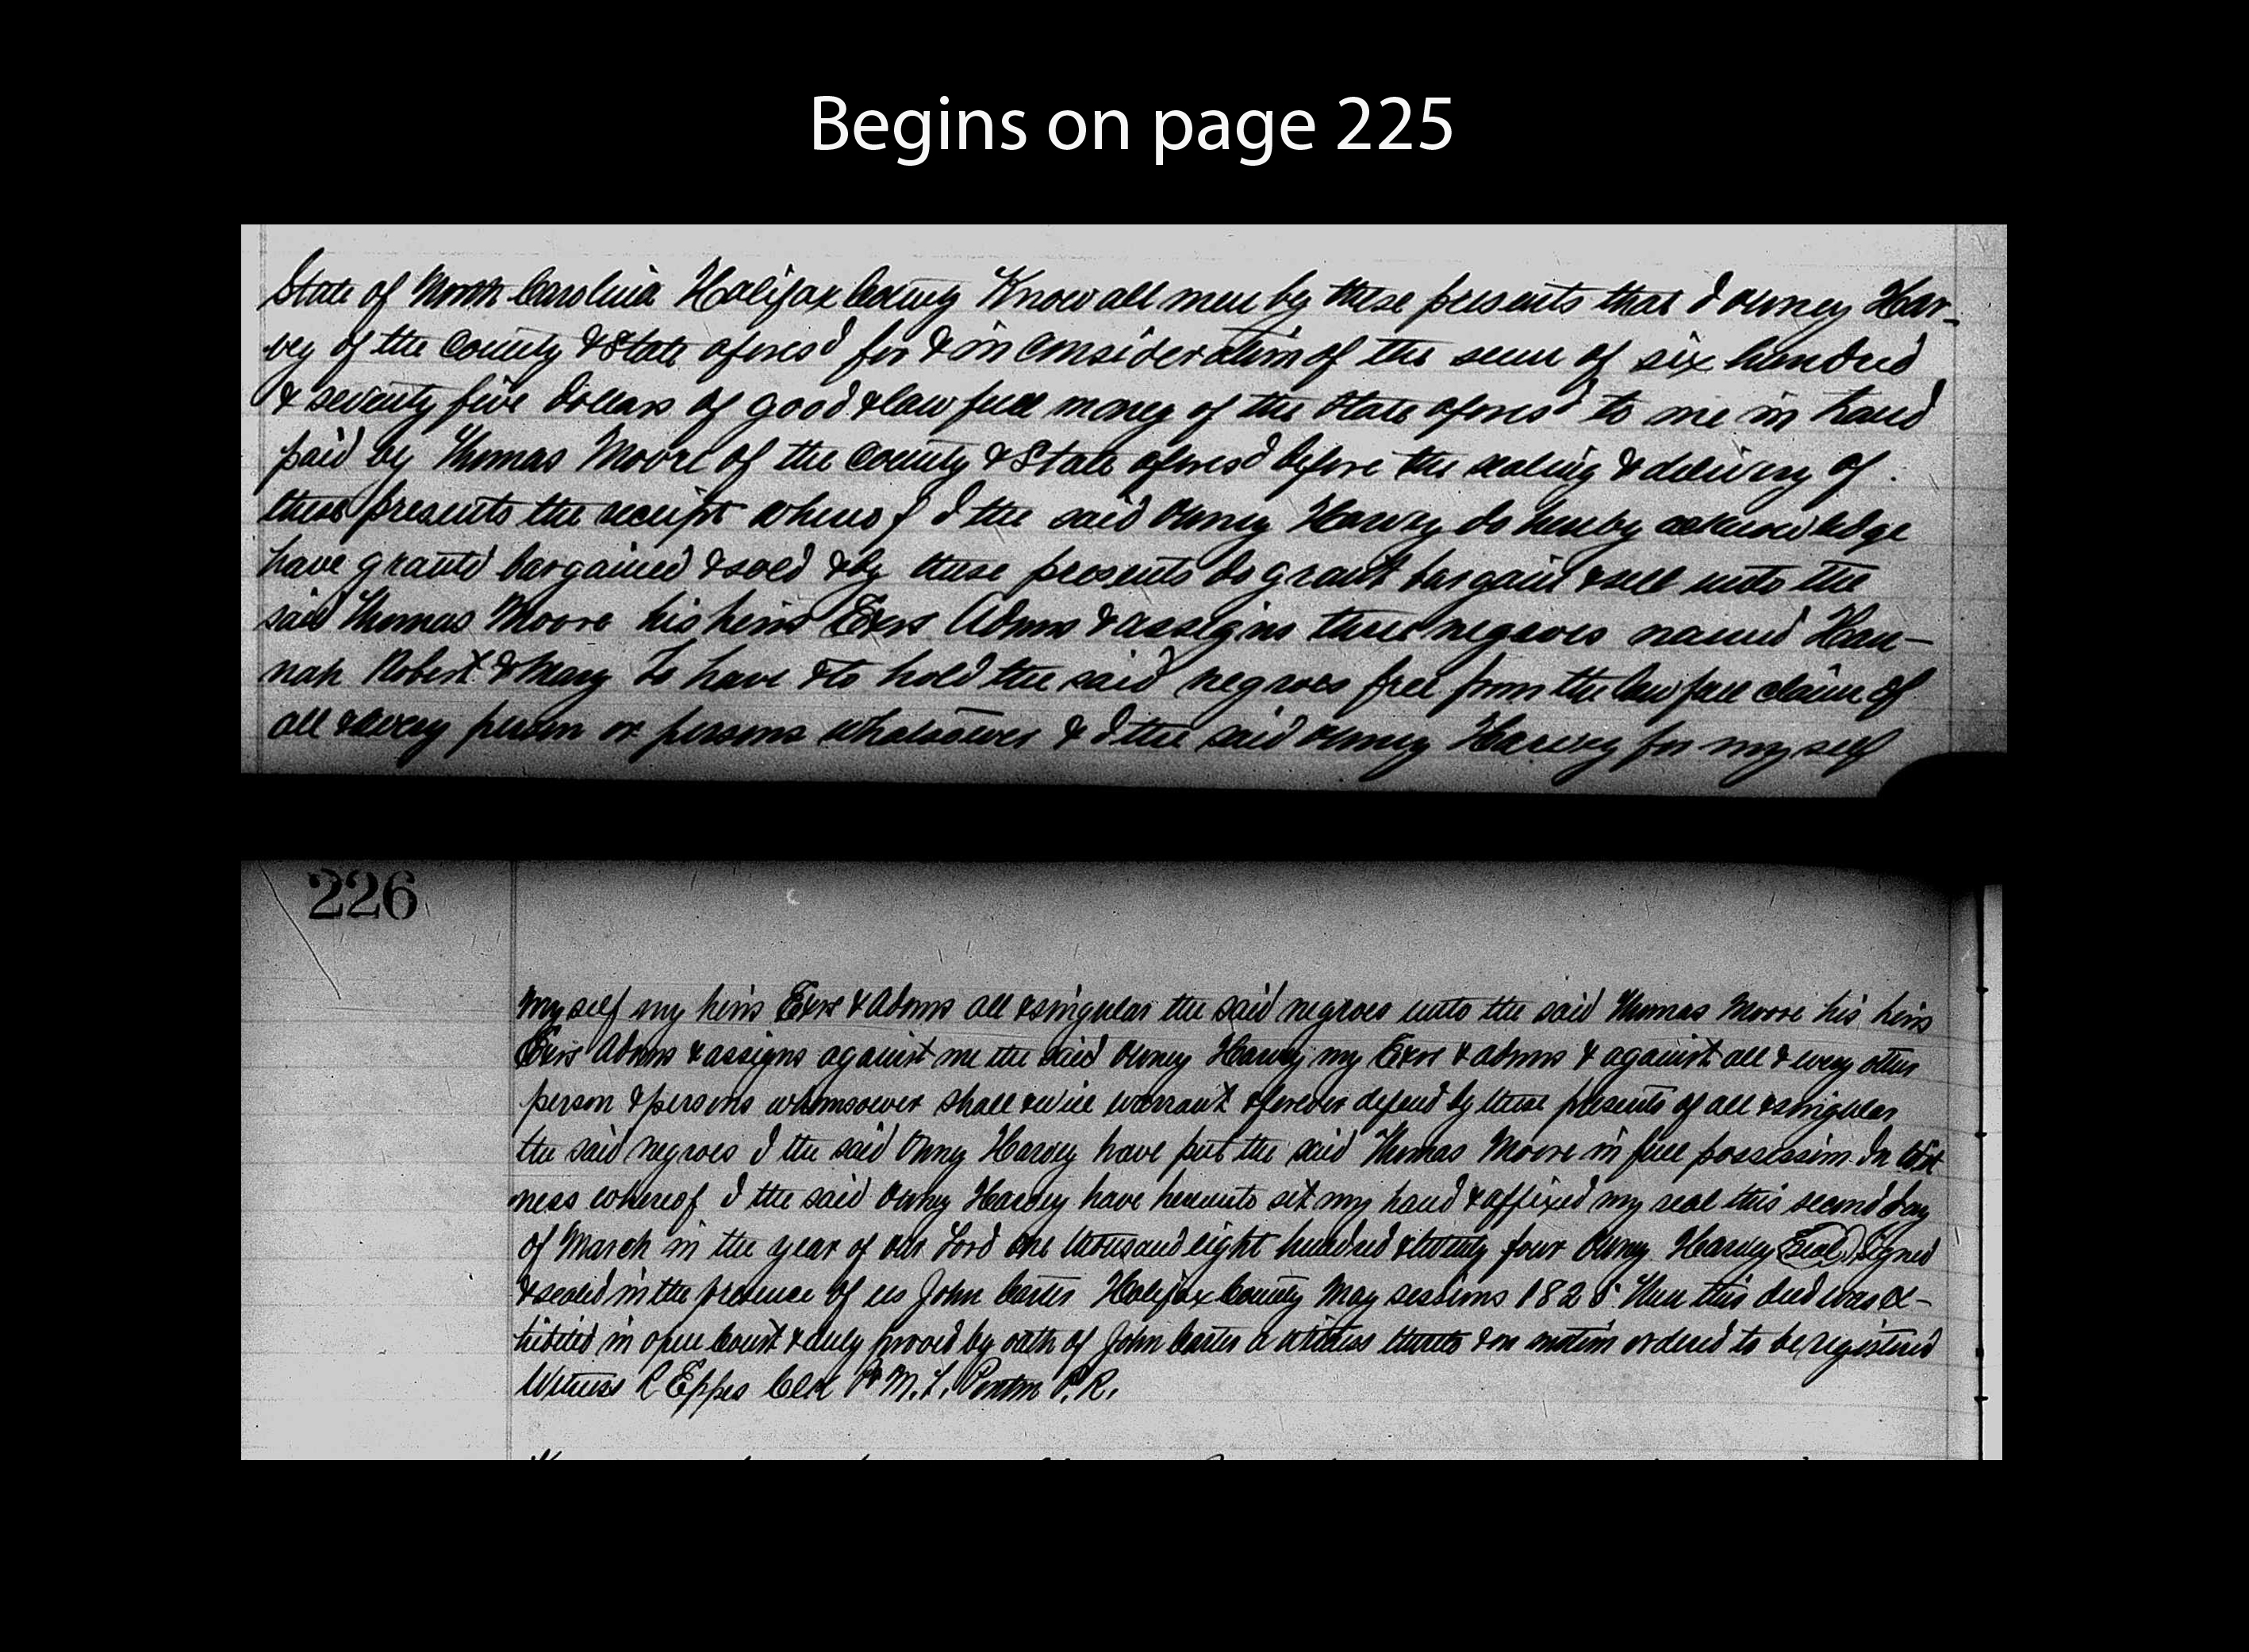 Begins on page 225
State of North Carolina Halifax County Know all men by these presents that I Owney Har-
vey of the County & State afores'd for & in consideration of the sum of six hundred
& seventy five dollars of good & lawfull money of the State afores'd to me in hand
paid by Thomas Moore of the County & State afores'd before the sealing & delivery of
these presents the receipt whereof I the said Owney Harvey do hereby acknowledge
have granted bargained & sold & by these presents do grant bargain & sell unto the
said Thomas Moore his heirs Exrs Adms & assigns three negroes named Han-
nah Robert & Mary To have & to hold the said negroes free from the lawfull claim of
all & every person or persons whatsoever & I the said Owney Harvey for my self
226
my self my heirs Exrs & Adms all & singular the said negroes unto the said Thomas Moore his heirs
Exrs Adms & assigns against me the said Owney Harvey my Exrs & adms & against all & every other
person & persons whomsoever shall & will warrant & forever defend by these presents of all & singular
the said negroes I the said Owney Harvey have put the said Thomas Moore in full possession. In Wit
ness whereof I the said Owney Harvey have hereunto set my hand & affixed my seal this second day
of March in the year of our Lord one thousand eight hundred & twenty four Owney Harvey (Seal) Signed
& sealed in the presence of us John Carter Halifax County May sessions 1825 Then this deed was ex-
hibited in open Court & duly proved by oath of John Carter a witness thereto & on motion ordered to be registered
Witness R Eppes Clk Pr M. L. Ponton P. R.